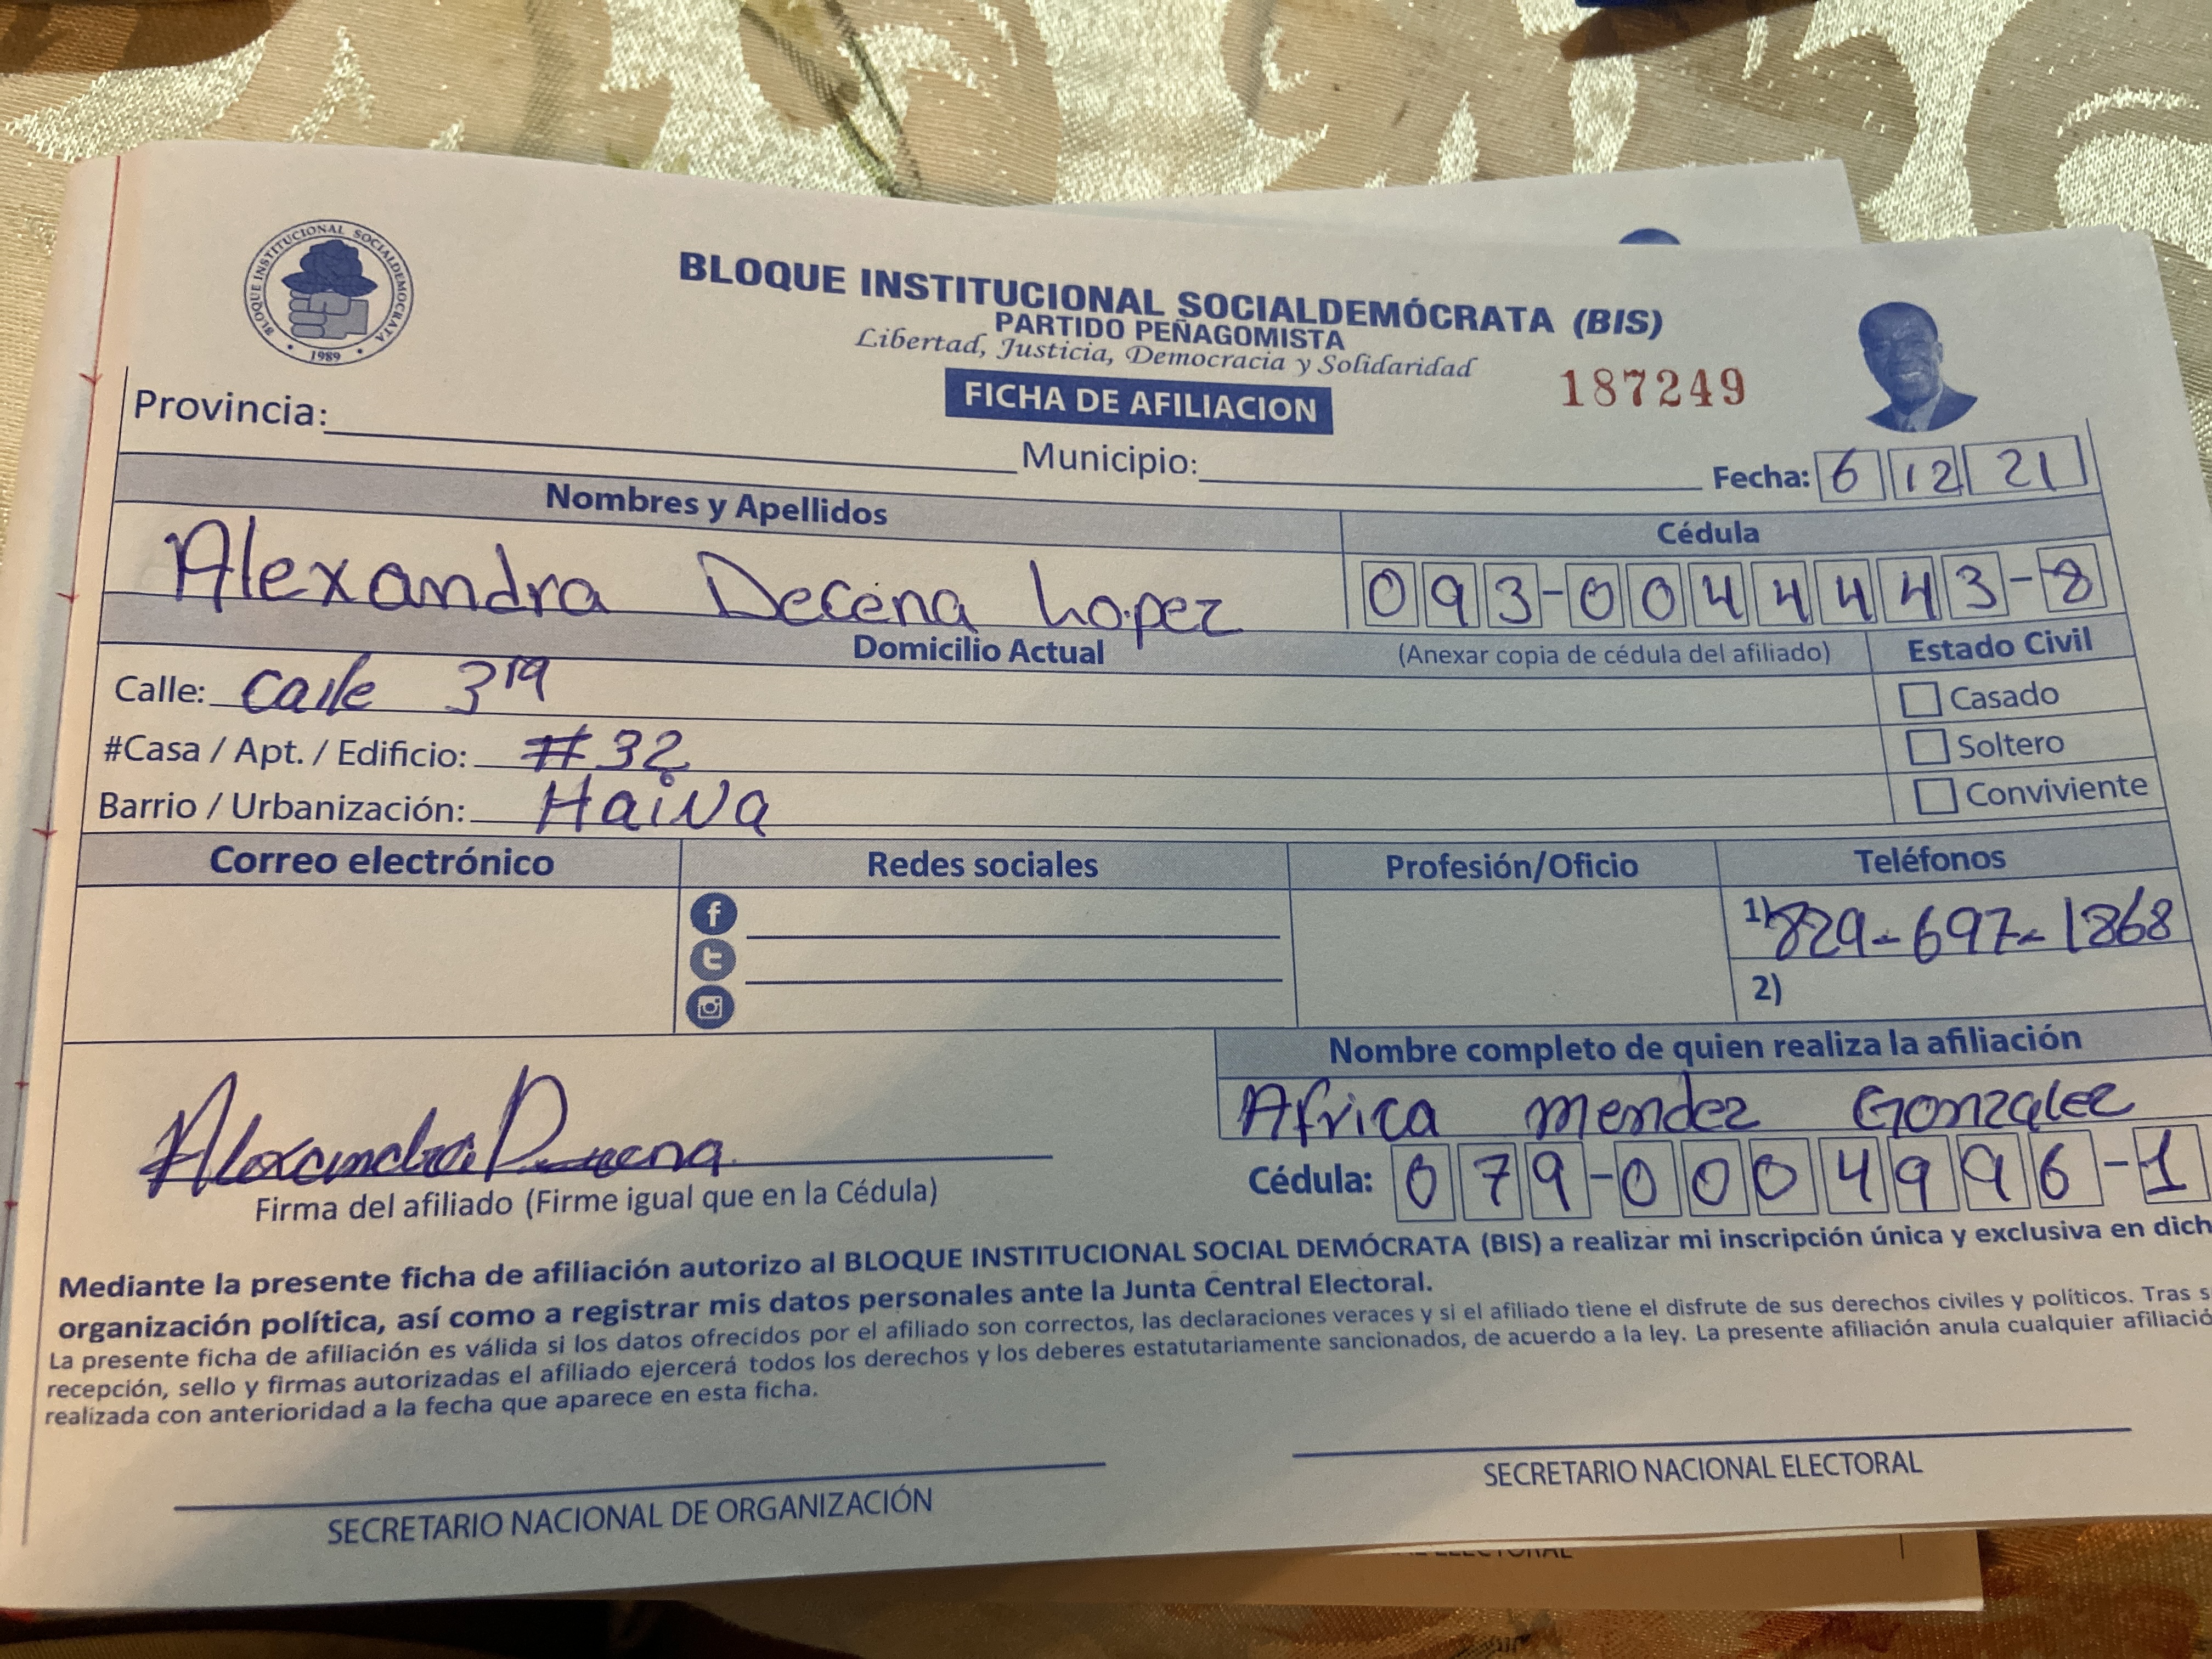 BLOQUE INSTITUCIONAL SOCIALDEMOCRATA
1989
BLOQUE INSTITUCIONAL SOCIALDEMÓCRATA (BIS)
PARTIDO PEÑAGOMISTA
Libertad, Justicia, Democracia y Solidaridad
FICHA DE AFILIACION
187249
Provincia:
Municipio:
Fecha: 6 12 21
Nombres y Apellidos
Cédula
Alexandra Decena Lopez
093-0044443-8
Domicilio Actual
(Anexar copia de cédula del afiliado)
Estado Civil
Calle: Calle 3ra
Casado
#Casa / Apt. / Edificio: #32
Soltero
Barrio / Urbanización: Haina
Conviviente
Correo electrónico
Redes sociales
Profesión/Oficio
Teléfonos
1) 829-697-1868
2)
Nombre completo de quien realiza la afiliación
Africa mendez Gonzalez
Alexandra Decena
Firma del afiliado (Firme igual que en la Cédula)
Cédula: 079-0004996-1
Mediante la presente ficha de afiliación autorizo al BLOQUE INSTITUCIONAL SOCIAL DEMÓCRATA (BIS) a realizar mi inscripción única y exclusiva en dich
organización política, así como a registrar mis datos personales ante la Junta Central Electoral.
La presente ficha de afiliación es válida si los datos ofrecidos por el afiliado son correctos, las declaraciones veraces y si el afiliado tiene el disfrute de sus derechos civiles y políticos. Tras s
recepción, sello y firmas autorizadas el afiliado ejercerá todos los derechos y los deberes estatutariamente sancionados, de acuerdo a la ley. La presente afiliación anula cualquier afiliació
realizada con anterioridad a la fecha que aparece en esta ficha.
SECRETARIO NACIONAL DE ORGANIZACIÓN
SECRETARIO NACIONAL ELECTORAL